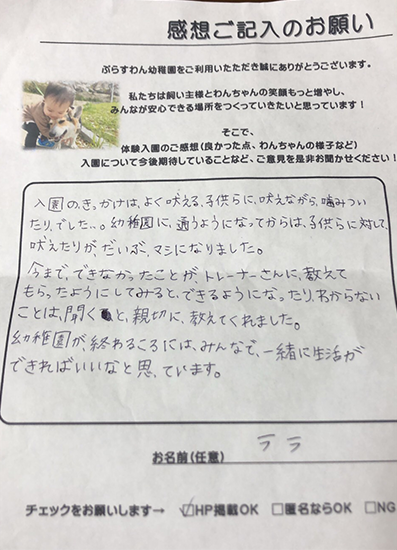 感想ご記入のお願い
ぷらすわん幼稚園をご利用いただき誠にありがとうございます。
私たちは飼い主様とわんちゃんの笑顔もっと増やし、
みんなが安心できる場所をつくっていきたいと思っています！
そこで、
体験入園のご感想（良かった点、わんちゃんの様子など）
入園について今後期待していることなど、ご意見を是非お聞かせください！
入園の、きっかけは、よく吠える、子供らに、吠えながら、噛みつい
たり、でした、、。幼稚園に、通うようになってからは、子供らに対して、
吠えたりが、だいぶ、マシになりました。
今まで、できなかったことが、トレーナーさんに、教えて
もらったようにしてみると、できるようになったり、わからない
ことは、聞くと、親切に、教えてくれました。
幼稚園が、終わるころには、みんなで、一緒に生活が
できればいいなと思っています。
お名前（任意） ララ
チェックをお願いします→ ☑HP掲載OK □匿名ならOK □NG